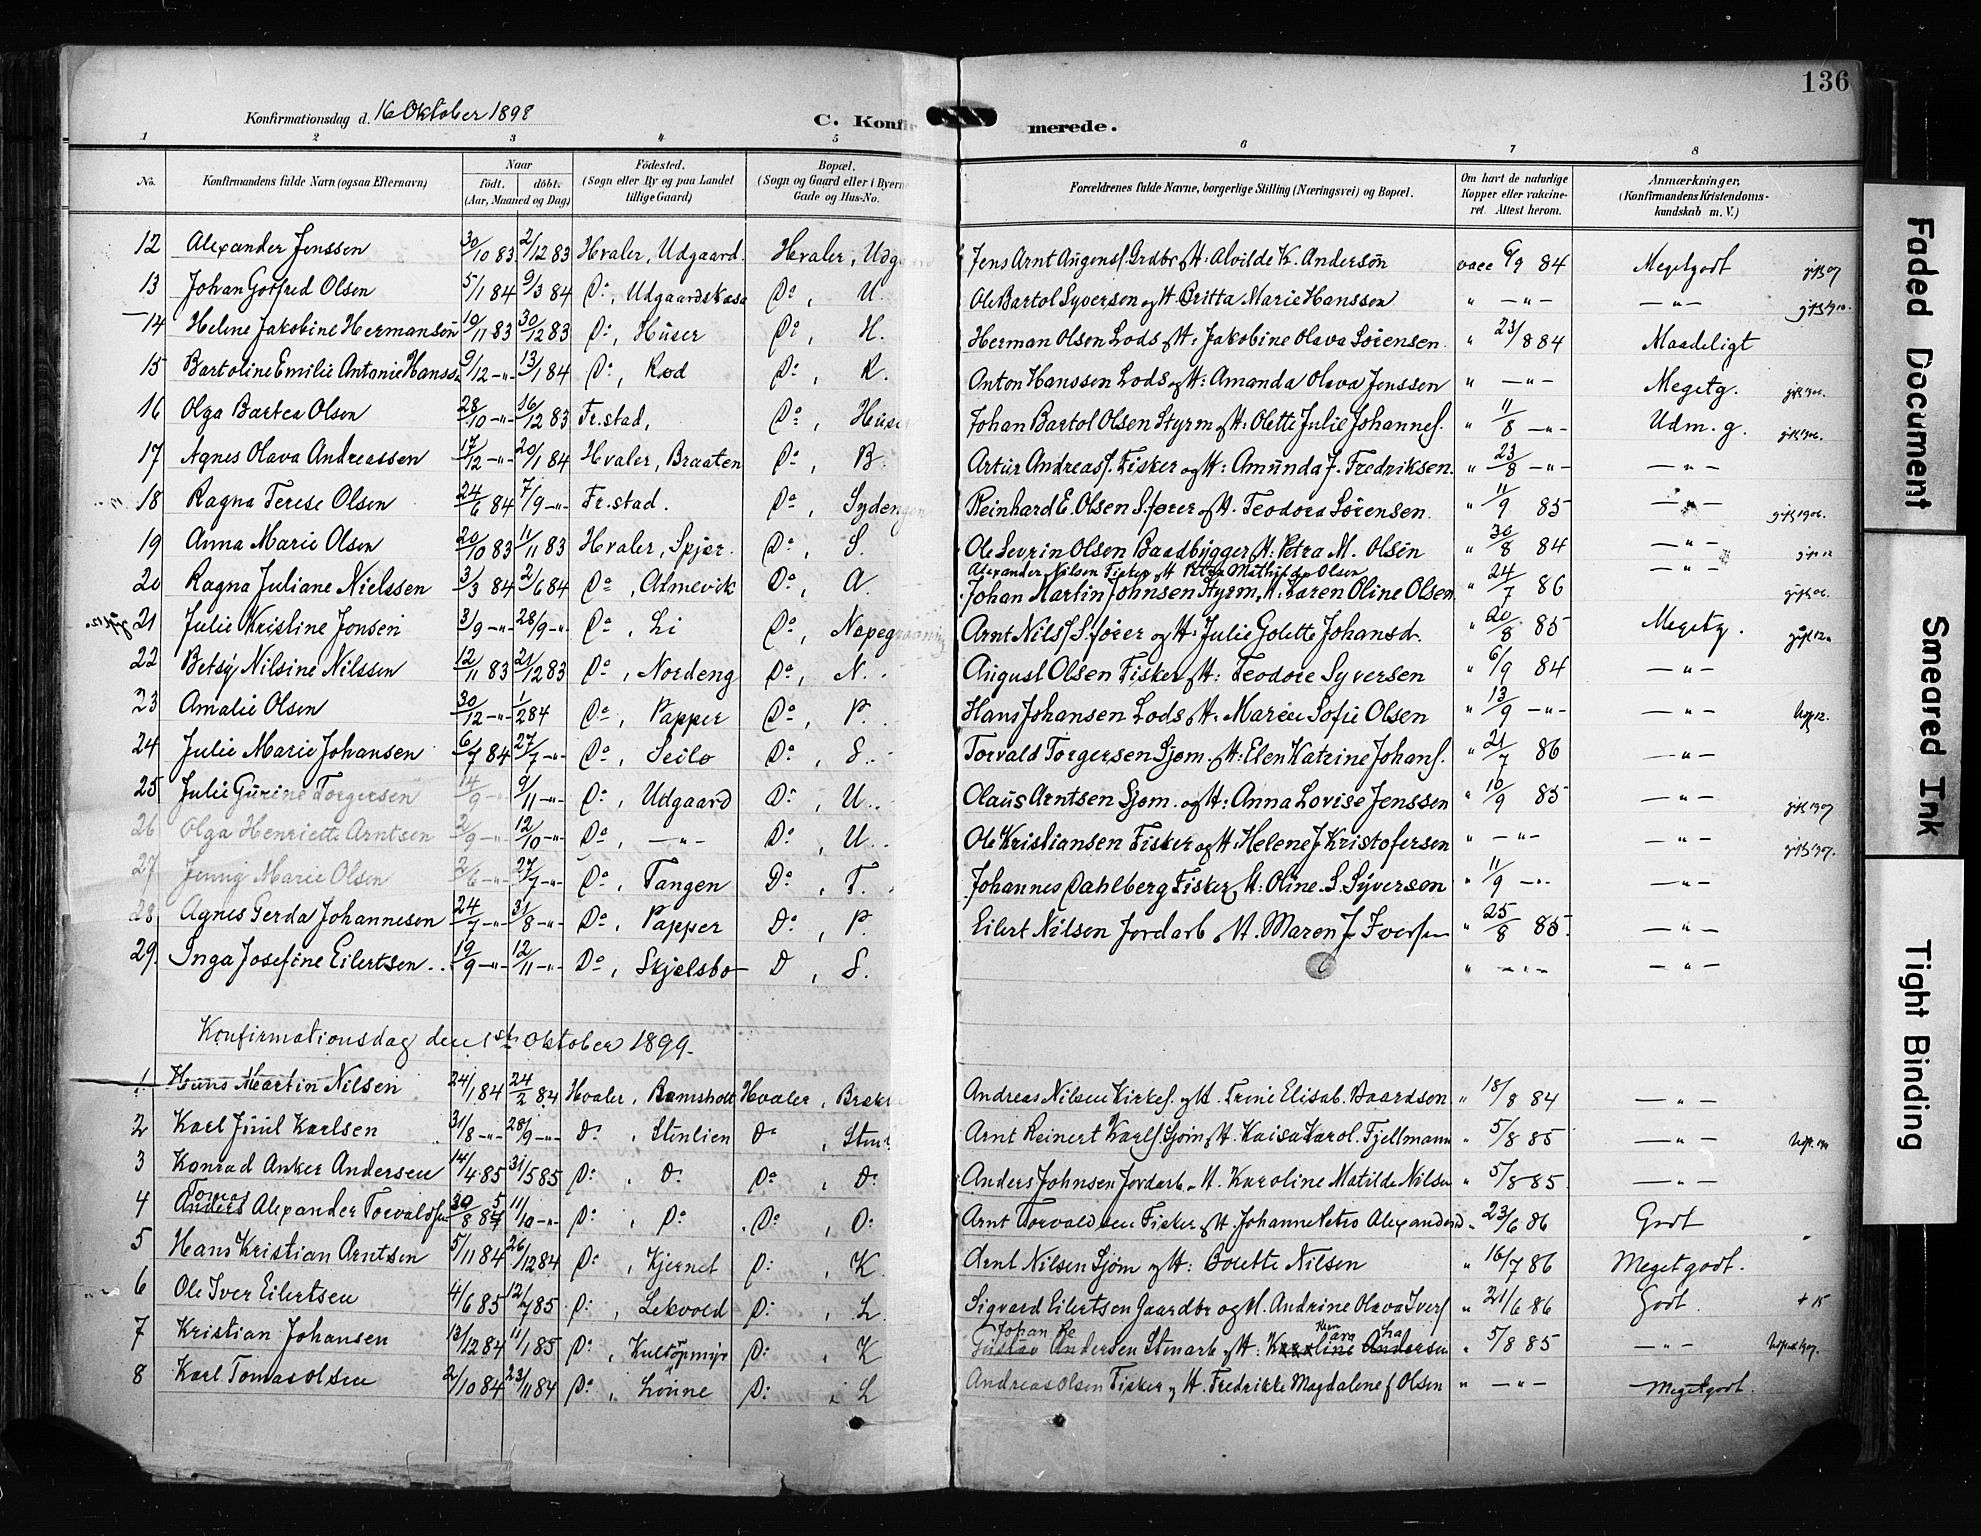 136
Konfirmationsdag d. 16 Oktober 1898
C. Konfir merede.
1 2 3 4 5 6 7 8
No. Konfirmandens fulde Navn (ogsaa Efternavn) Naar födt. döbt. (Aar, Maaned og Dag) Födested. (Sogn eller By og paa Landet tillige Gaard) Bopæl. (Sogn og Gaard eller i Byern Gade og Hus-No. Forældrenes fulde Navne, borgerlige Stilling (Næringsvei) og Bopæl. Om havt de naturlige Kopper eller vakcineret. Attest herom. Anmærkninger, (Konfirmandens Kristendomskundskab m. V.)
12 Alexander Jenssen 30/10 83 2/12 83 Hvaler, Udgaard. Hvaler, Udgaard Jens Arnt Augenss. Grdbr. og H. Alvilde K. Andersen vacc 6/9 84 Megetgodt
13 Johan Gotfred Olsen 5/1 84 9/3 84 Do, Udgaardskasa Do, U. Ole Bartol Syversen og H. Britta Marie Hanssen " —"— —"—
14 Helene Jakobine Hermansen 10/11 83 30/12 83 Do, Huser Do, H. Herman Olsen Lods og H: Jakobine Olava Sørensen " 23/8 84 Maadeligt
15 Bartoline Emilie Antonie Hanssen 9/12 -"- 13/1 84 Do, Rød Do, R. Anton Hanssen Lods og H: Amanda Olava Jenssen " —"— Megetg.
16 Olga Bartea Olsen 28/10 -"- 16/12 83 Fr.stad, Do, Huser Johan Bartol Olsen Styrm. og H: Olette Julie Johannes. " 11/8 -"- Udm. g.
17 Agnes Olava Andreassen 17/12 -"- 20/1 84 Hvaler, Braaten Do, B. Artur Andreass. Fisker og H: Amunda J. Fredriksen " 23/8 -"- —"—
18 Ragna Terese Olsen 24/6 84 7/9 -"- Fr.stad. Do, Sydengen Reinhard E. Olsen S.fører og H. Teodora Sørensen " 11/9 85 —"—
19 Anna Marie Olsen 20/10 83 11/11 83 Hvaler, Spjær. Do, S. Ole Sevrin Olsen Baadbygger, H: Petra M. Olsen " 30/8 84 —"—
Alexander Nilsen Fisker og H Petra Mathilde Olsen
20 Ragna Juliane Nielssen 3/3 84 2/6 84 Do, Ødmevik Do, A. Johan Martin Johnsen Styrm, H. Karen Oline Olsen " 24/7 86 —"—
21 Julie Kristine Jonsen 3/9 -"- 28/9 -"- Do, Li Do, Nepegaarding Arnt Nilss. S.fører og H: Julie Golette Johansd. " 20/8 85 Megetg.
22 Betsy Nilsine Nilssen 12/11 83 21/12 83 Do, Nordeng Do, N. August Olsen Fisker og H: Teodore Syversen " 6/9 84 —"—
23 Amalie Olsen 30/12 -"- 1/2 84 Do, Papper Do, P. Hans Johansen Lods og H: Maren Sofie Olsen " 13/9 -"- —"—
24 Julie Marie Johansen 6/7 84 27/7 -"- Do, Seilø Do, S. Torvald Torgersen Sjøm. og H: Elen Katrine Johans. " 21/7 86 —"—
25 Julie Gurine Torgersen 14/9 -"- 9/11 -"- Do, Udgaard Do, U. Olaus Arntsen Sjøm. og H: Anna Lovise Jenssen " 10/9 85 —"—
26 Olga Henriette Arntsen 2/9 -"- 12/10 -"- Do, —"— Do, U. Ole Kristiansen Fisker og H. Helene J Kristofersen " —"— —"—
27 Jenny Marie Olsen 2/6 -"- 27/7 -"- Do, Tangen Do, T. Johannes Dahlberg Fisker, H: Oline. S. Syversen " 11/9 -"- —"—
28 Agnes Gerda Johannesen 24/7 -"- 31/8 -"- Do, Papper Do, P. Eilert Nilsen Jordarb og H. Maren J Iversen " 25/8 85 —"—
29. Inga Josefine Eilertsen 19/9 -"- 12/11 -"- Do, Skjelsbo D, S. " —"— —"—
Konfirmationsdag den 1ste Oktober 1899.
1 Hans Martin Nilsen 24/1 84 24/2 84 Hvaler, Ramsholt Hvaler, Brekke Andreas Nilsen Kirkes. og H. Trine Elisab. Baardsen " 18/8 84 —"—
2 Karl Juul Karlsen 31/8 -"- 28/9 -"- Do, Stenlien Do, Sten Arnt Reinert Karls. Sjøm, H. Kaisa Karol. Fjellmann " 5/8 85 —"—
3 Konrad Anker Andersen 14/4 85 31/5 85 Do, Do Do, Do Anders Johnsen Jordarb. og H. Karoline Matilde Nilsen " 5/8 85 —"—
Tomas
4 Anders Alexander Torvaldsen 30/8 84 11/10 -"- Do, Do Do, Do Arnt Torvaldsen Fisker og H. Johanne Petro Alexandersd " 23/6 86 Godt
5 Hans Kristian Arntsen 5/11 84 26/12 84 Do, Kjernet Do, K Arnt Nilsen Sjøm og H: Bolette Nilsen " 16/7 86 Meget godt.
6 Ole Iver Eilertsen 4/6 85 12/7 85 Do, Lekvold Do, L Sigvard Eilertsen Gaardbr og H. Andrine Olava Ivers " 21/6 86 Godt. + 15
7 Kristian Johansen 13/12 84 11/1 85 Do, Kultopmyr Do, K Gustav Andersen Stenarb og H: Karoline Andersen " 5/8 85 —"—
8 Karl Tomas Olsen 2/10 84 23/11 84 Do, Lønne Do, L Andreas Olsen Fisker og H. Fredrikke Magdalene J Olsen " —"— Megetgodt.
Faded Document
Smeared Ink
Tight Binding